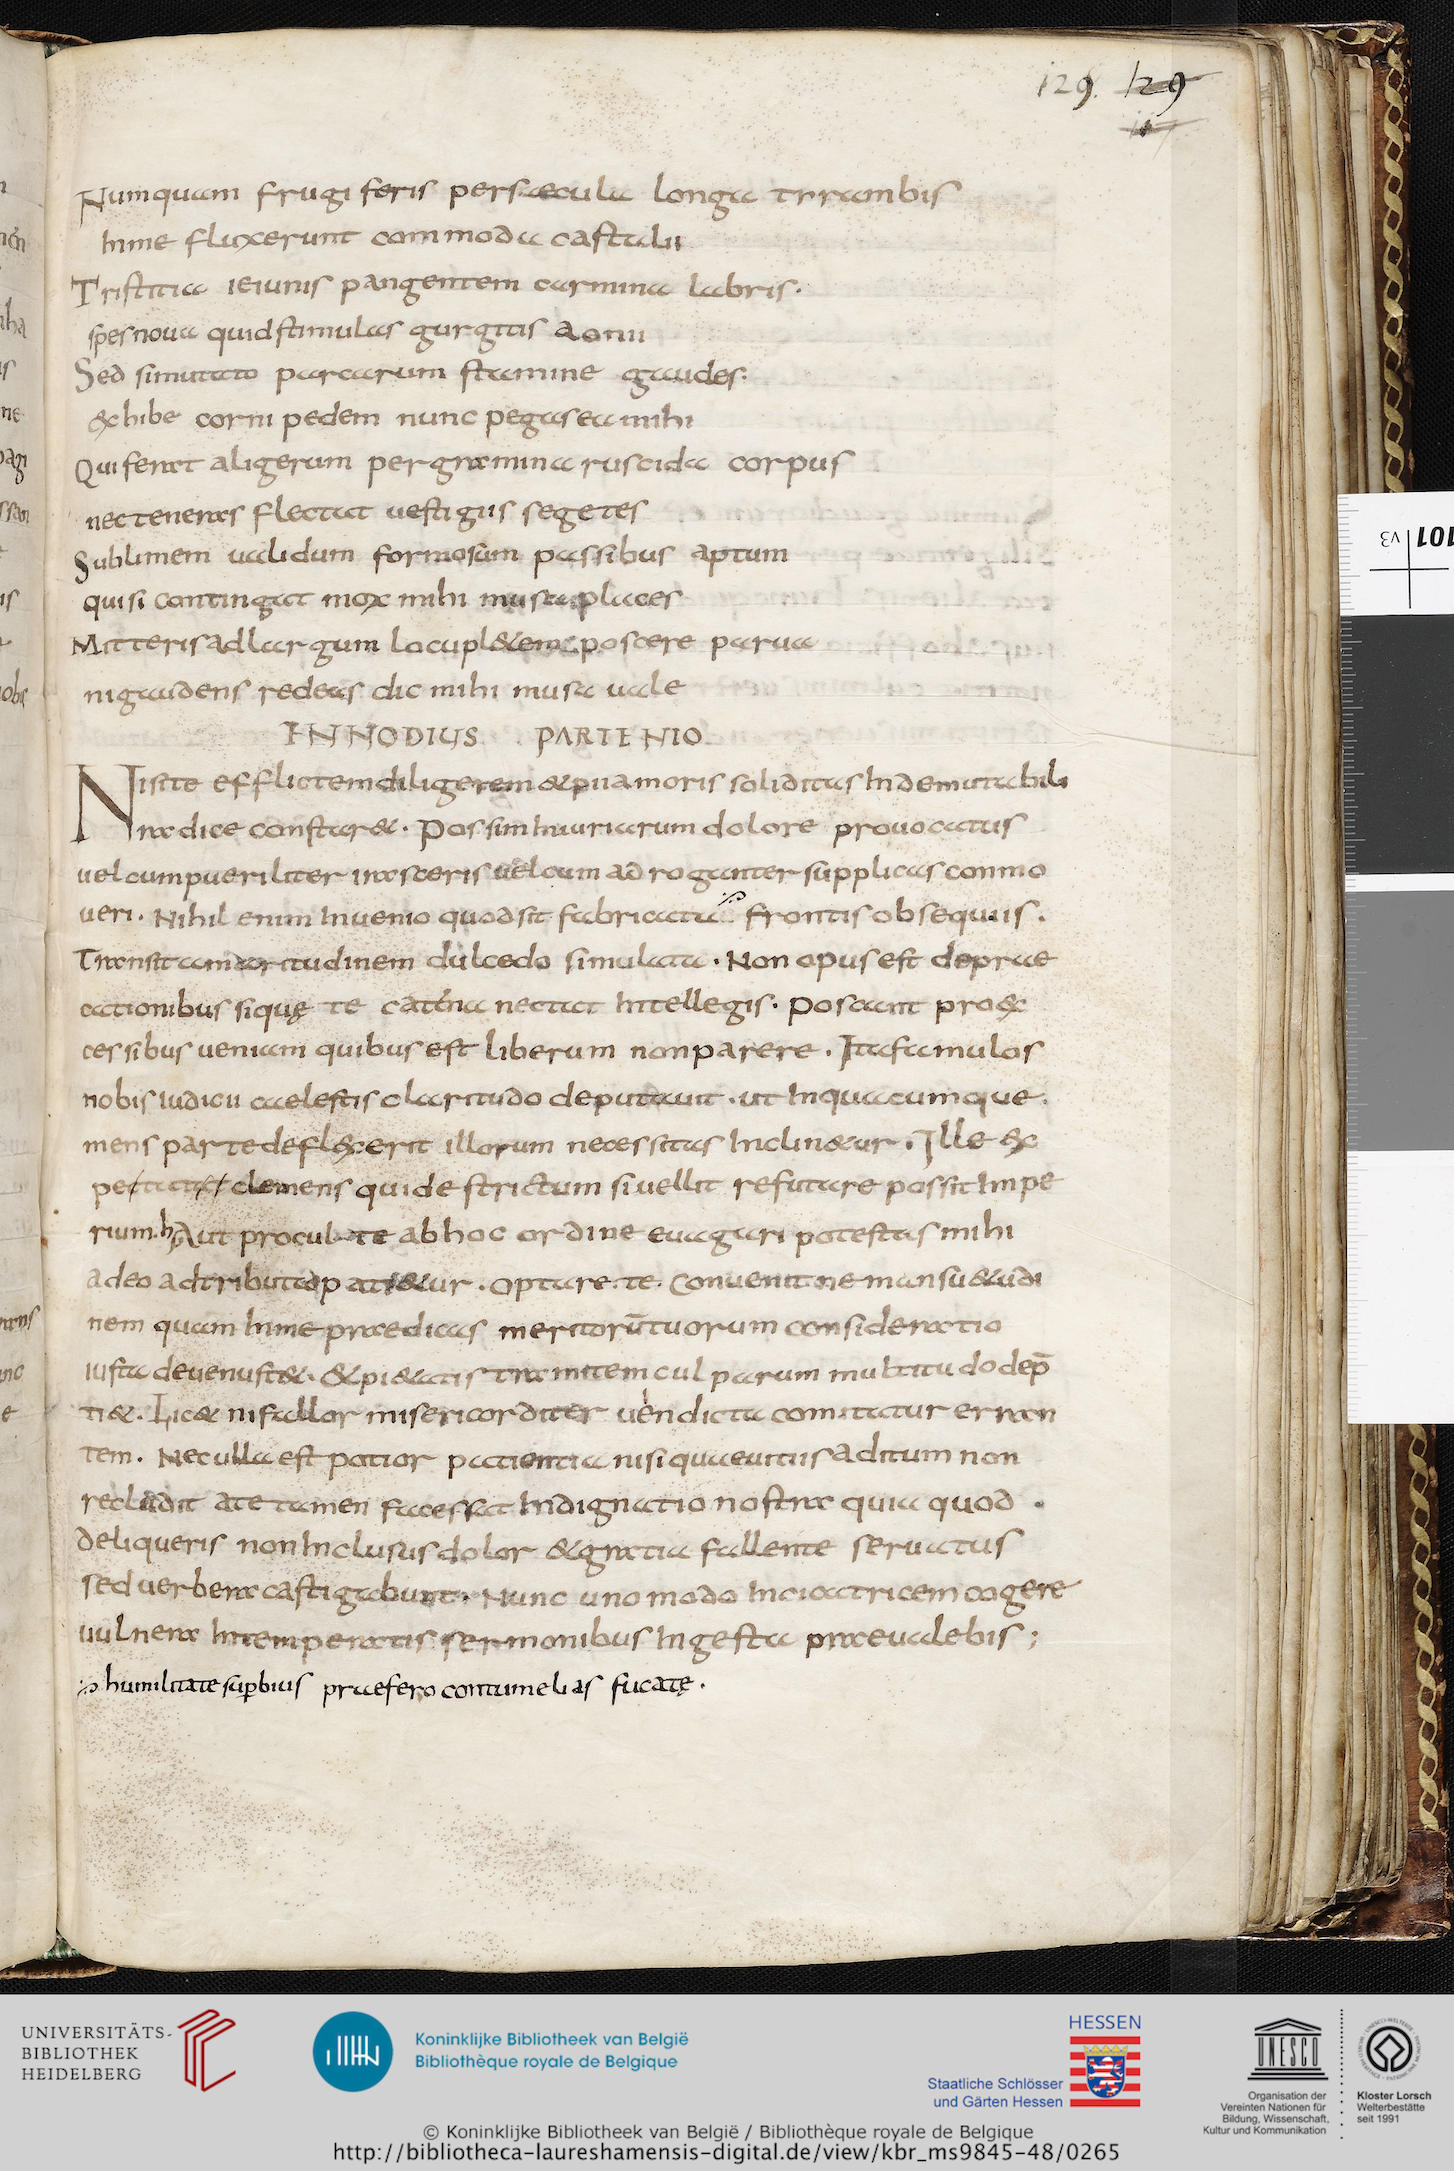 129. 129
Numquam frugiferis persaecula longa trrambis
hinne fluxerunt commoda castalii
Tristitia ieiunis pangentem carmina labris.
spes noua quid stimulas gurgitis aonii
Sed si mutato parcarum stamine gaudes.
exhibe corni pedem nunc pegasea mihi
Qui ferat aligerum per gramina ruscida corpus
nec teneras flectat uestigiis segetes
Sublimem ualidum formosum passibus aptum
qui si contingat mox mihi musa places
Mitteris ad largum locupl&em poscere parua
ni gaudens redeas dic mihi musa uale
ENNODIUS PARTENIO
Ni s te efflictem diligerem & pii amoris soliditas Indemutabili
radice constar&. Possim Iniuriarum dolore prouocatus
uel cum pueriliter irasceris uel cum adroganter supplicas conmo
ueri. Nihil enim Inuenio quod sit fabricata frontis obsequiis.
Transit amaritudinem dulcedo simulata. Non opus est deprae
cationibus si quę te catena nectat Intellegis. Poscant pro ex
cessibus ueniam quibus est liberum non parere. Ita famulos
nobis iudicii caelestis claritudo deputauit. ut Inquacumque.
mens parte deflexerit illorum necessitas Inclin&ur. Ille ex
pectat clemens qui destrictum si uellit refutare possit Impe
rium. h Aut procul te ab hoc ordine euagari potestas mihi
adeo adtributa pati&ur. optare te. Conuenit ne mansu&udi
nem quam Inme praedicas meritorū tuorum consideratio
iusta deuenust&. & pi&atis tramitem culparum multitudo dep̄
ti&. Lic& ni fallor misericorditer uendicta comitatur erran
tem. Nec ulla est potior patientia nisi quae uitiis aditum non
recludit a te tamen facessat Indignatio nostra quia quod .
deliqueris non Inclusus dolor & gratia fallente seruatus
sed uerbera castigabunt. Nunc uno modo Incicatricem cogere
uulnera Intemperatis sermonibus Ingesta praeualebis;
humilitate supbius praefero contumelias fucatę.
101
v3
UNIVERSITÄTS-
BIBLIOTHEK
HEIDELBERG
Koninklijke Bibliotheek van België
Bibliothèque royale de Belgique
HESSEN
Staatliche Schlösser
und Gärten Hessen
UNESCO
Organisation der
Vereinten Nationen für
Bildung, Wissenschaft,
Kultur und Kommunikation
Kloster Lorsch
Welterbestätte
seit 1991
© Koninklijke Bibliotheek van België / Bibliothèque royale de Belgique
http://bibliotheca-laureshamensis-digital.de/view/kbr_ms9845-48/0265